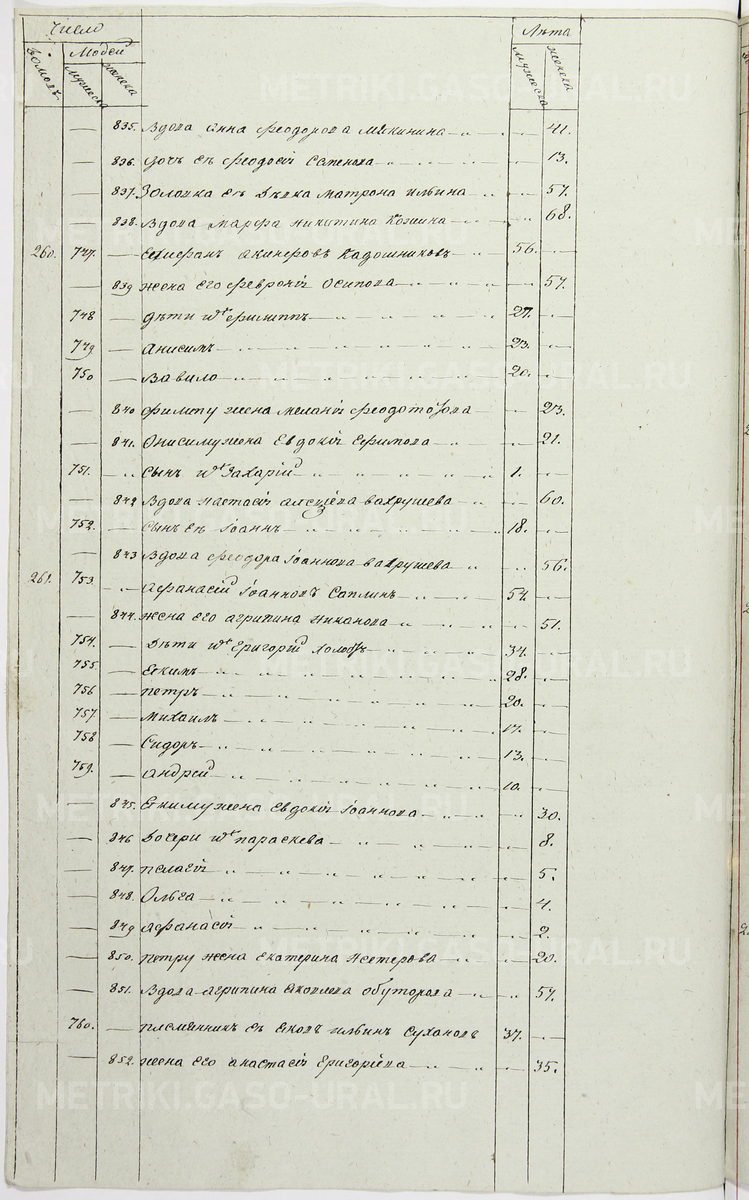 Число Лѣта
Домовъ Людей
мужеска женска мужеска женска
835. Вдова анна Феодорова Мякинина 41.
836. дочь ея Феодосiя Семенова 13.
837. Золовка ея Дѣвка матрона ильина 57.
838. Вдова марфа никитина 68.
260. 747. Епифанъ Кадошниковъ 56.
839 жена его Февронiя Осипова 57.
748 дѣти их Филиппъ 27.
749 Анисимъ 23.
750 Вавило 20.
840 Филипу жена меланiя 23.
841. Онисиму жена Евдокiя Ефимова 21.
751. сынъ их Захарiй 1.
842 Вдова настасiя алексеева вахрушева 60.
752. сынъ ея Iоаннъ 18.
843 Вдова феодора Iоаннова вахрушева 56.
261. 753. афанасiй Iоанновъ Саплинъ 54.
844. жена его агрипина никанова 51.
754. Дѣти их Григорiй холостъ 34.
755 Екимъ 28.
756 петръ 20.
757. михаилъ 17.
758 Сидоръ 13.
759. андрей 10.
845. Екиму жена Евдокiя Iоаннова 30.
846 Дочери их параскева 8.
847. пелагiя 5.
848. Ольга 4.
849 афанасiя 2.
850. петру жена Екатерина 20.
851. Вдова агрипина Яковлева Обуторова 57.
760. племянникъ ея Яковъ ильинъ Сухановъ 37.
852. жена его анастасiя Григорiева 35.
METRIKI.GASO-URAL.RU